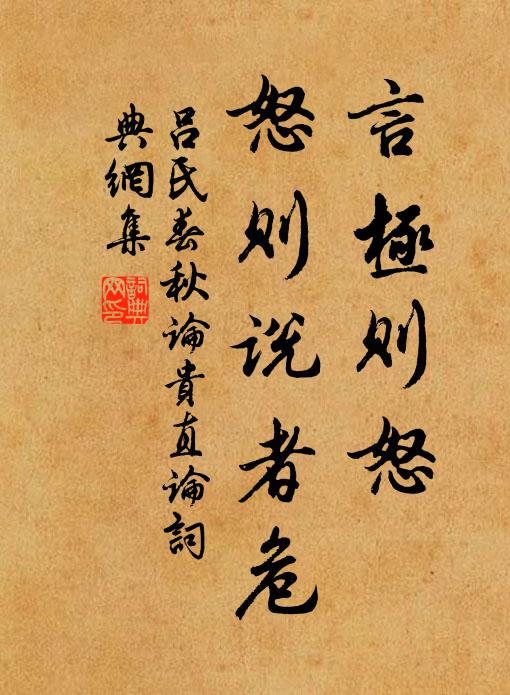 言極則怒
怒則説者危
呂氏春秋論貴直論詞
典網集
詞典
网印